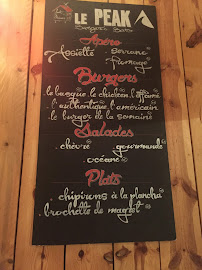 LE PEAK
Burger Bar
Apéro
Assiette . serrano
. fromage
Burgers
. le basque . le chicken . l'affamé
. l'authentique . l'américain
. le burger de la semaine
Salades
. chèvre . gourmande
. océane
Plats
. chipirons à la plancha
. brochette de magret